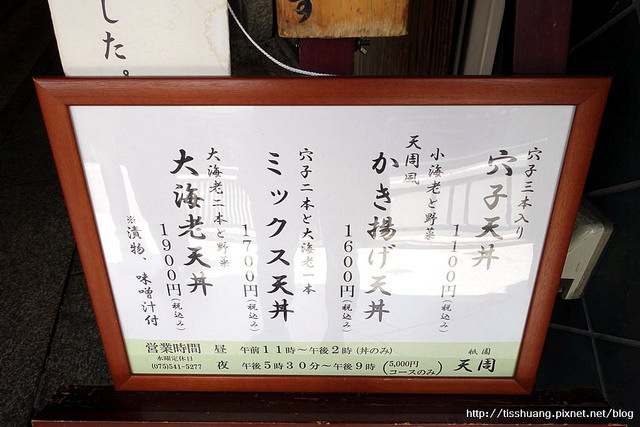 した。
す
穴子三本入り
穴子天丼
1100円(税込み)
小海老と野菜
天周風
かき揚げ天丼
1600円(税込み)
穴子二本と大海老一本
ミックス天丼
1700円(税込み)
大海老二本と野菜
大海老天丼
1900円(税込み)
※漬物、味噌汁付
営業時間 昼 午前11時〜午後2時(丼のみ)
水曜定休日
(075)541-5277 夜 午後5時30分〜午後9時(5,000円コースのみ)
祇園
天周
http://tisshuang.pixnet.net/blog